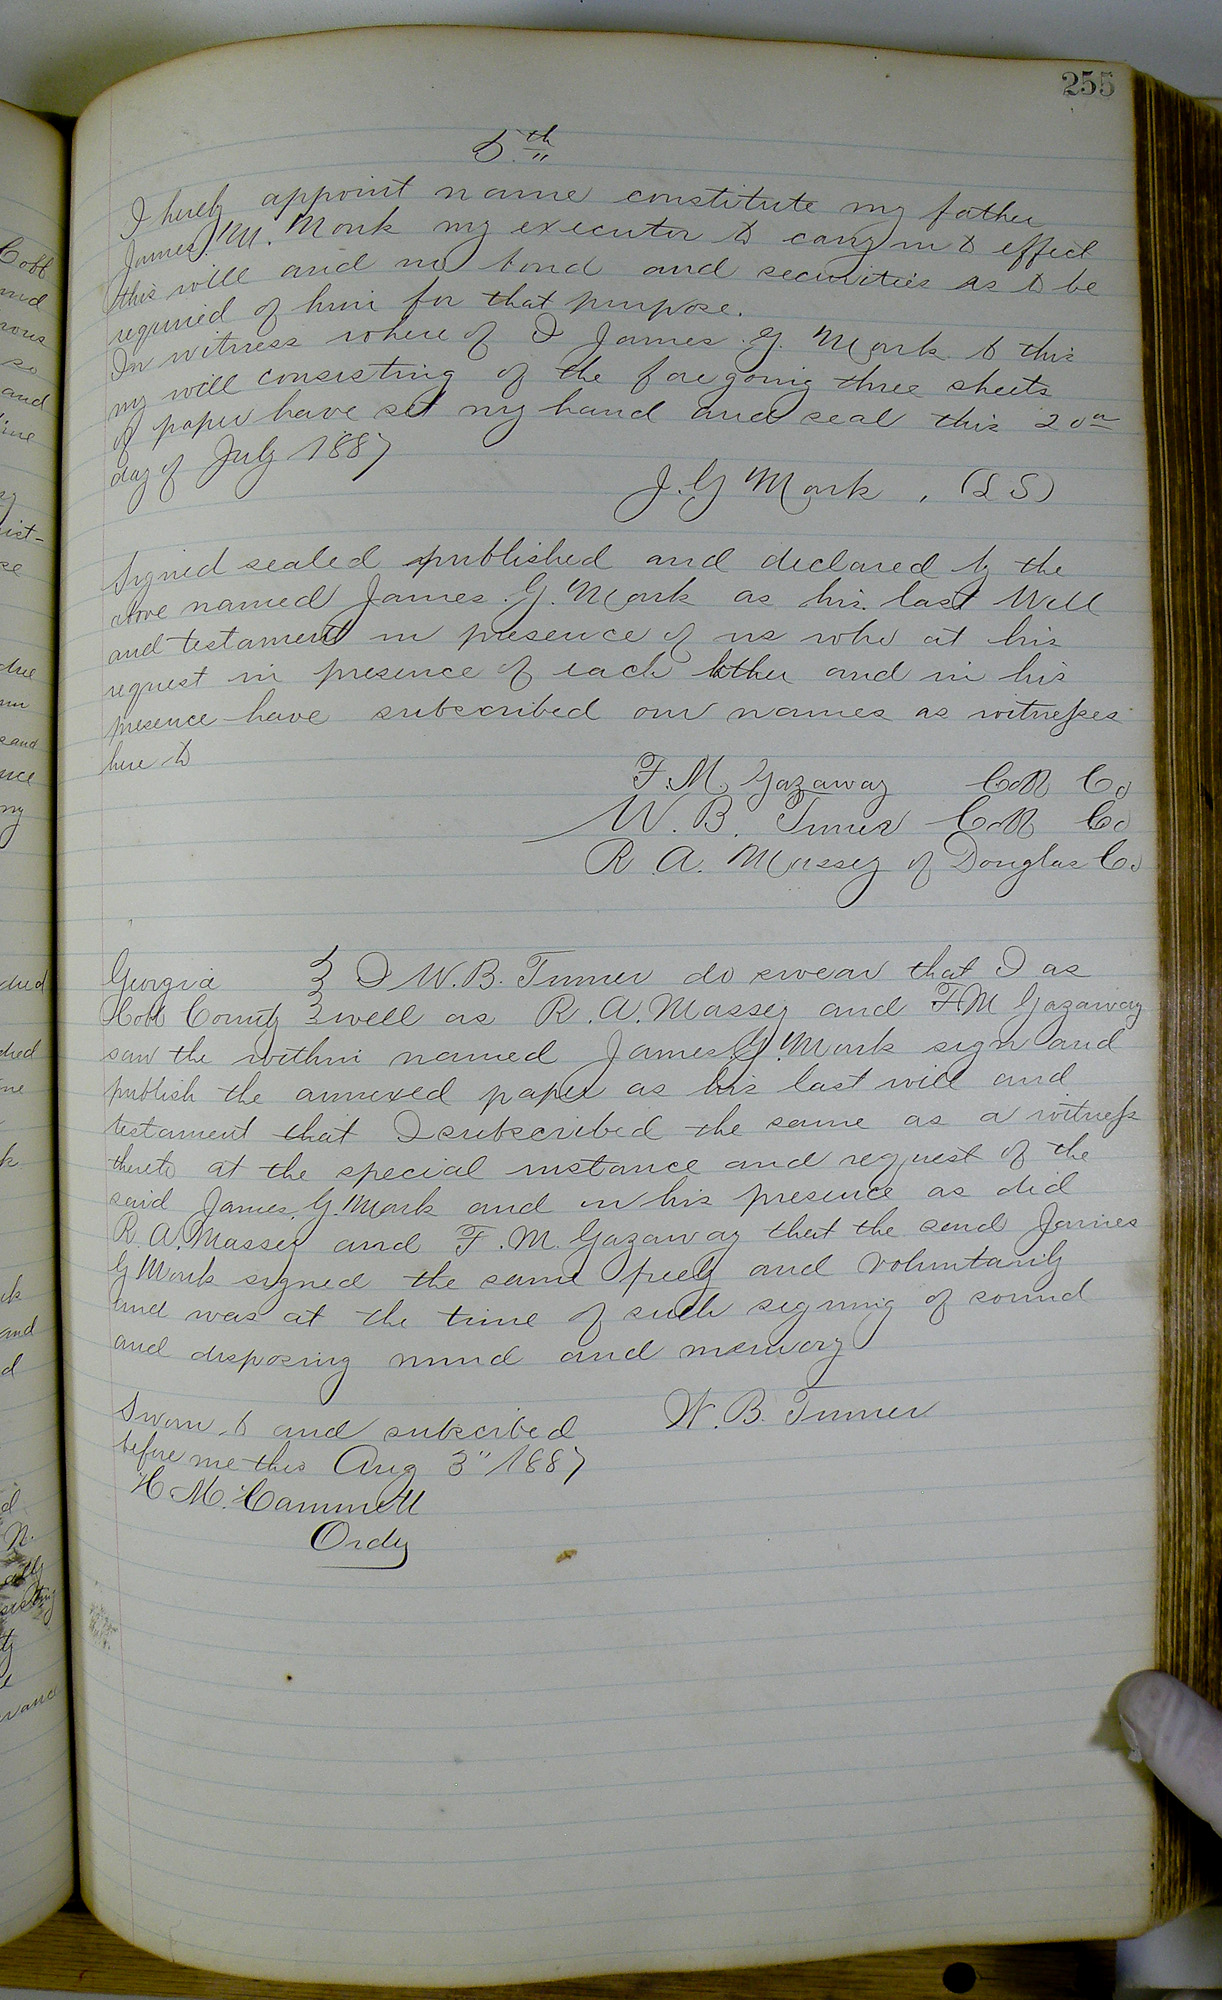 255
5th
I hereby appoint name constitute my father
James M. Monk my executor to carry in to effect
this will and no bond and securities is to be
required of him for that purpose.
In witness where of I James G. Monk to this
my will consisting of the foregoing three sheets
of paper have set my hand and seal this 20th
day of July 1887
J. G Monk , (L S)
Signed sealed published and declared by the
above named James G. Monk as his last Will
and testament in presence of us who at his
request in presence of each other and in his
presence have subscribed our names as witnesses
here to
F. M. Gazaway Cobb Co
W. B. Turner Cobb Co
R. A. Massey of Douglas Co
Georgia } I W. B. Turner do swear that I as
Cobb County } well as R. A. Massey and F M Gazaway
saw the within named James G. Monk sign and
publish the annexed paper as his last will and
testament that I subscribed the same as a witness
thereto at the special instance and request of the
said James G. Monk and in his presence as did
R. A. Massey and F. M. Gazaway that the said James
G Monk signed the same freely and voluntarily
and was at the time of such signing of sound
and disposing mind and memory
W. B. Turner
Sworn to and subscribed
before me this Aug 3" 1887
H. M. Hammett
Ordy